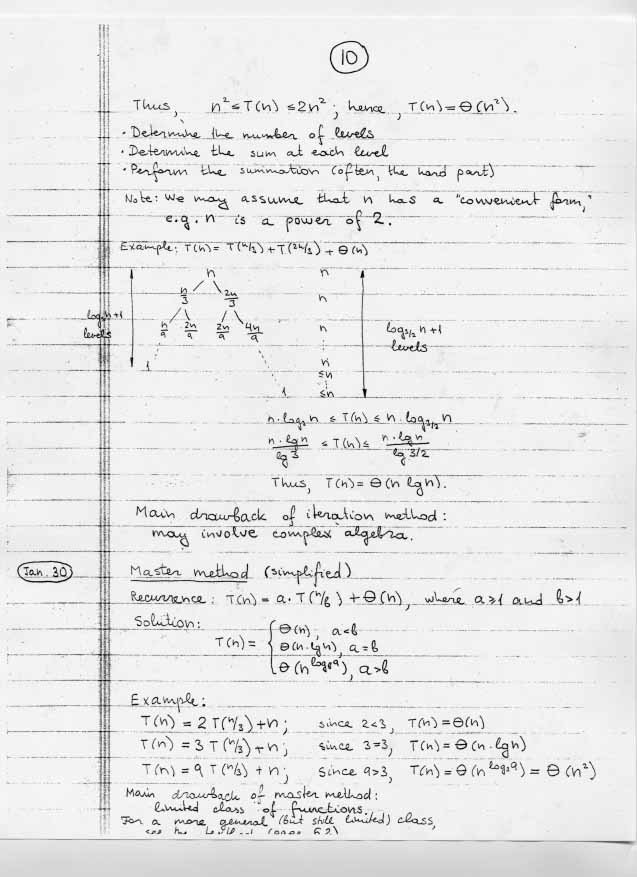 10
Thus, n² ≤ T(n) ≤ 2n²; hence, T(n) = Θ(n²).
· Determine the number of levels
· Determine the sum at each level
· Perform the summation (often, the hard part)
Note: We may assume that n has a "convenient form,"
e.g. n is a power of 2.
Example: T(n) = T(n/3) + T(2n/3) + Θ(n)
n n
n/3 2n/3 n
log₃n+1 levels n/9 2n/9 2n/9 4n/9 n log₃/₂ n+1 levels
1 n
≤n
1 ≤n
n·log₃n ≤ T(n) ≤ n·log₃/₂ n
n·lgn/lg 3 ≤ T(n) ≤ n·lgn/lg 3/2
Thus, T(n) = Θ(n lgn).
Main drawback of iteration method:
may involve complex algebra.
Jan. 30 Master method (simplified)
Recurrence: T(n) = a·T(n/b) + Θ(n), where a≥1 and b>1
Solution:
T(n) = { Θ(n), a<b
Θ(n·lgn), a=b
Θ(n^log_b a), a>b
Example:
T(n) = 2T(n/3)+n; since 2<3, T(n)=Θ(n)
T(n) = 3T(n/3)+n; since 3=3, T(n)=Θ(n·lgn)
T(n) = 9T(n/3)+n; since 9>3, T(n)=Θ(n^log₃9) = Θ(n²)
Main drawback of master method:
limited class of functions.
For a more general (but still limited) class,